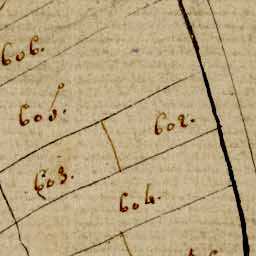 606.
605.
602.
603.
604.